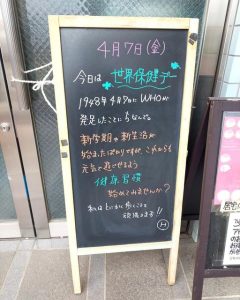 4月7日(金)
今日は 世界保健デー
1948年4月7日にWHOが
発足したことにちなんで。
新学期や新生活が
始まったばかりですが、これからも
元気で過ごせるよう
健康習慣
始めてみませんか?
私はとにかく歩くことを
頑張ります!!
H